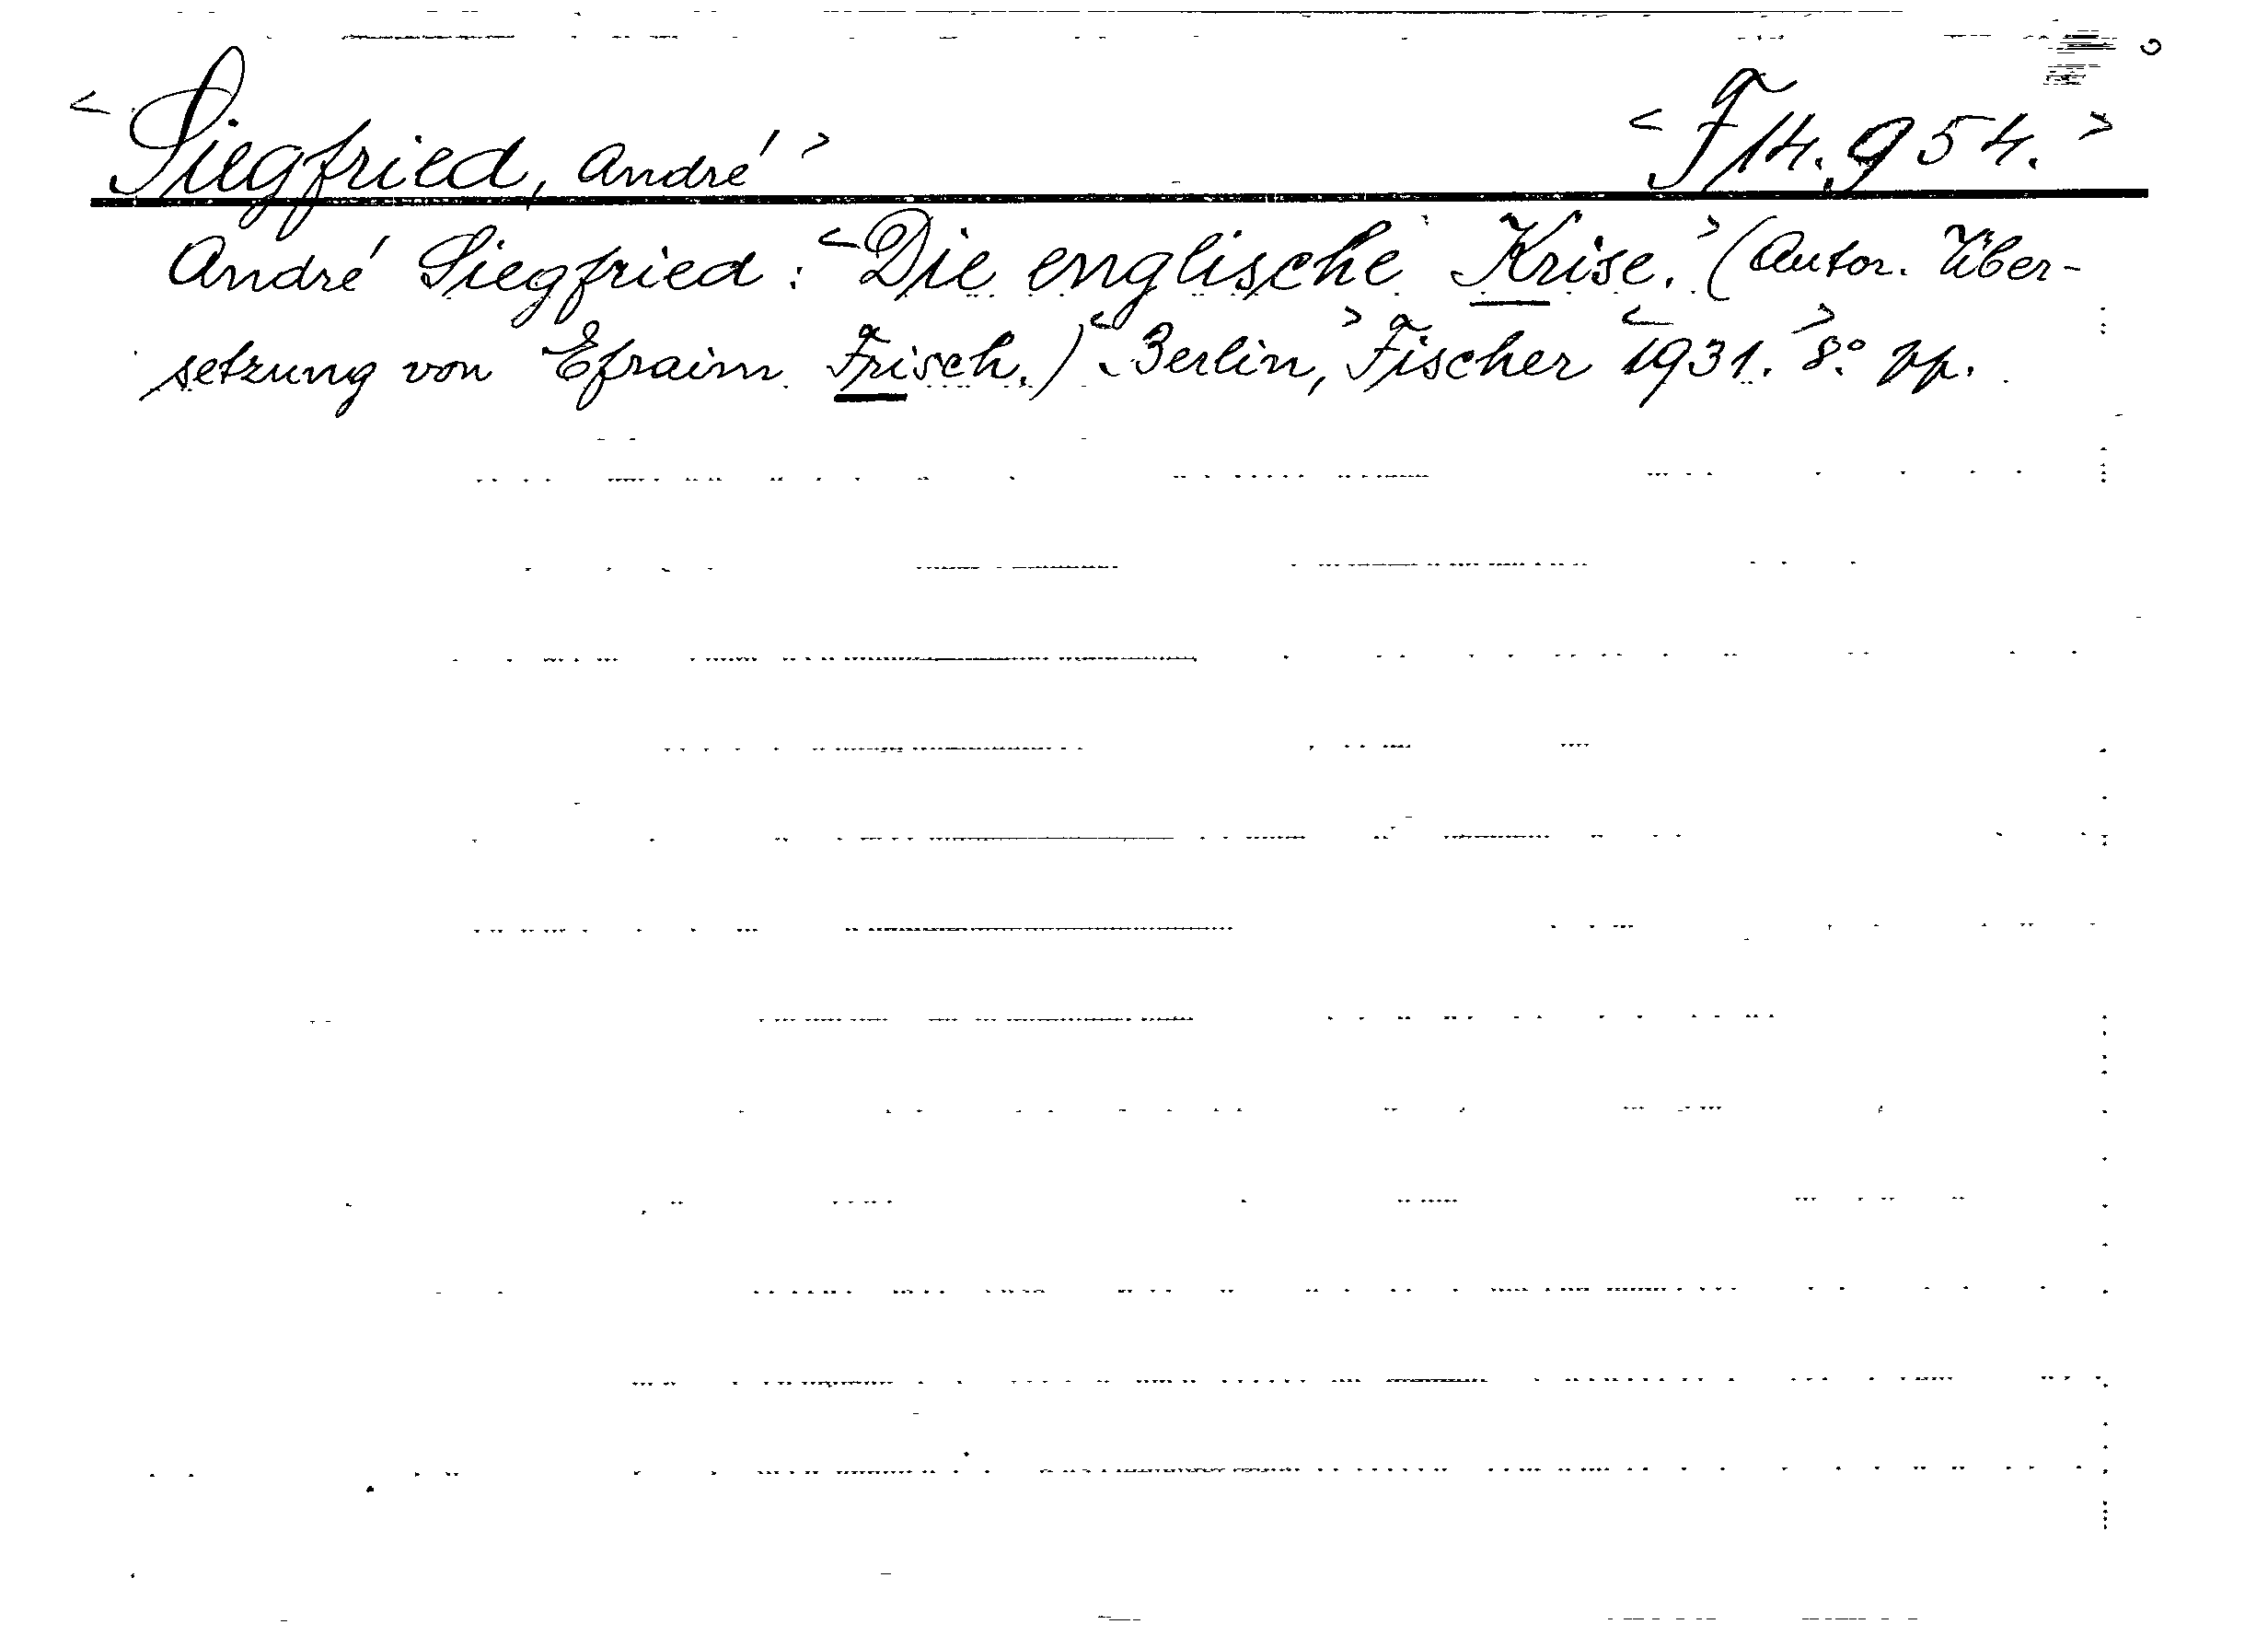 <Siegfried, André> <F 14.954.>
André Siegfried: <Die englische Krise.> (Autor. Über-
setzung von Efraim Frisch.) <Berlin,> Fischer <1931.> 8° pp.